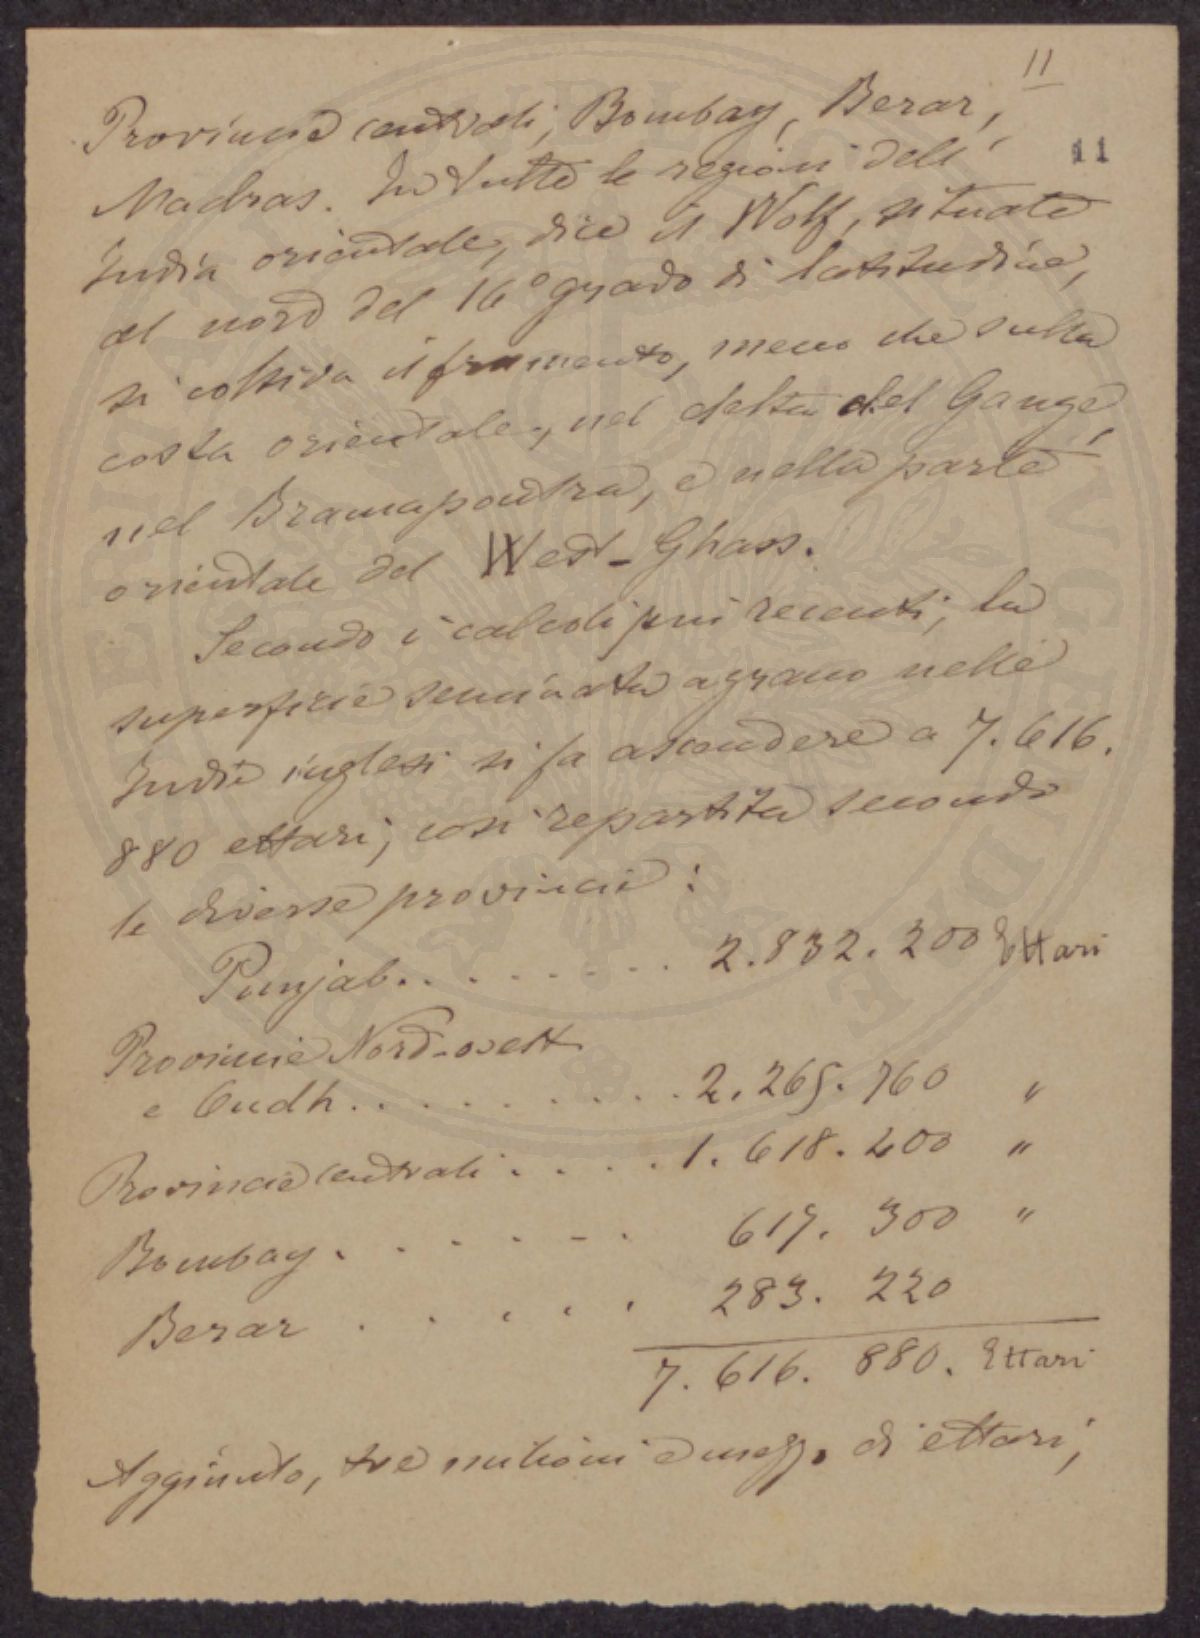 11
11
Provincie centrali, Bombay, Berar,
Madras. In tutte le regioni dell'
India orientale, dice il Wolf, situate
al nord del 16° grado di latitudine,
si coltiva il frumento, meno che sulla
costa orientale, nel delta del Gange,
nel Bramapoutra, e nella parte
orientale del West-Ghass.
Secondo i calcoli più recenti, la
superficie seminata a grano nelle
Indie inglesi si fa ascendere a 7.616.
880 ettari, così repartita secondo
le diverse provincie:
Punjab......... 2.832.200 Ettari
Provincie Nord-ovest
e Oudh.......... 2.265.760 "
Provincie centrali..... 1.618.400 "
Bombay....... 617.300 "
Berar..... 283.220
7.616.880. Ettari
Aggiunto, tre milioni e mezzo di ettari,